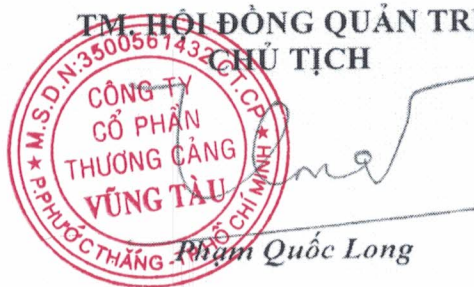 TM. HỘI ĐỒNG QUẢN TR
CHỦ TỊCH
M.S.D.N:3500561432-CT.CP
CÔNG TY
CỔ PHẦN
THƯƠNG CẢNG
VŨNG TÀU
P.PHƯỚC THẮNG - TP. HỒ CHÍ MINH
Phạm Quốc Long